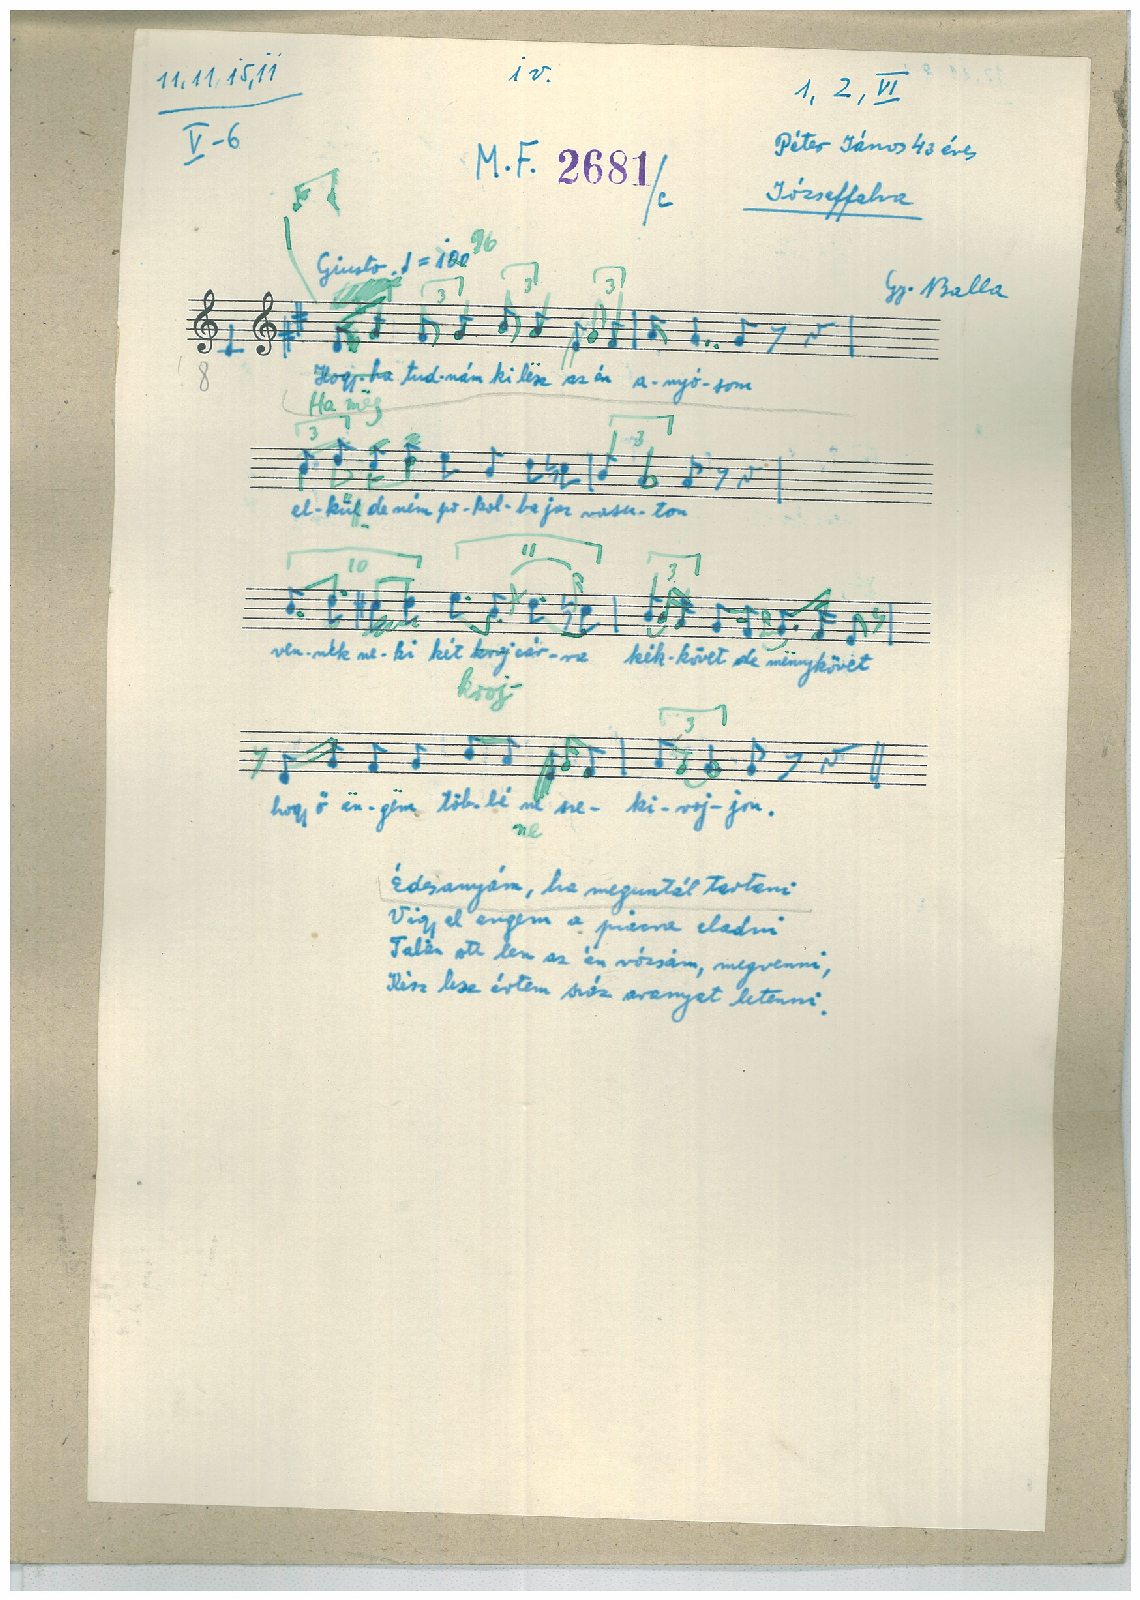 11, 11, 15, 11
iv.
1, 2, VI
V-6
M.F. 2681/c
Péter János 43 éves
Józseffalva
Giusto. ♩ = 100 96
Gy. Balla
3 3 3
8
Hogy ha tud-nám ki lësz az én a-nyó-som
Ha még
3 3
el-kül-deném po-kol-ba jaz vasu-ton
10 11 3
ven-nék ne-ki két krajcár-ra kék-követ de mënnykövet
kroj-
3
hogy ő ën-gëm töb-bé ne sze- ki-roj-jon.
ne
Édesanyám, ha meguntál tartani
Vigy el engem a piacra eladni
Talán ott len az én rózsám, megvenni,
Kész lesz értem száz aranyat letenni.